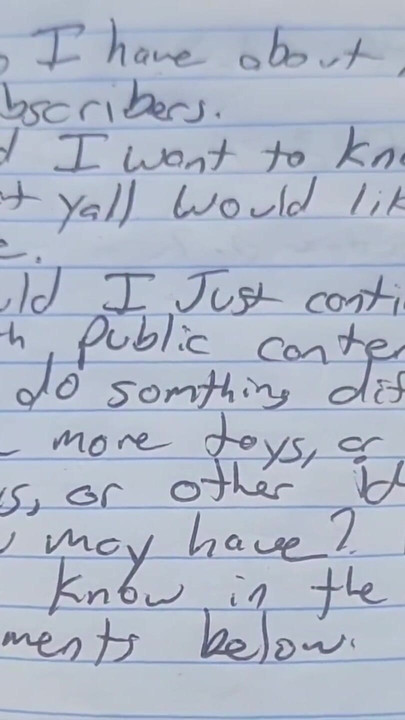 I have about
bscribers.
d I want to kno
t yall would lik
e.
uld I Just conti
h public conten
do somthing dif
more toys, or
s, or other id
may have?
know in the
ments below.